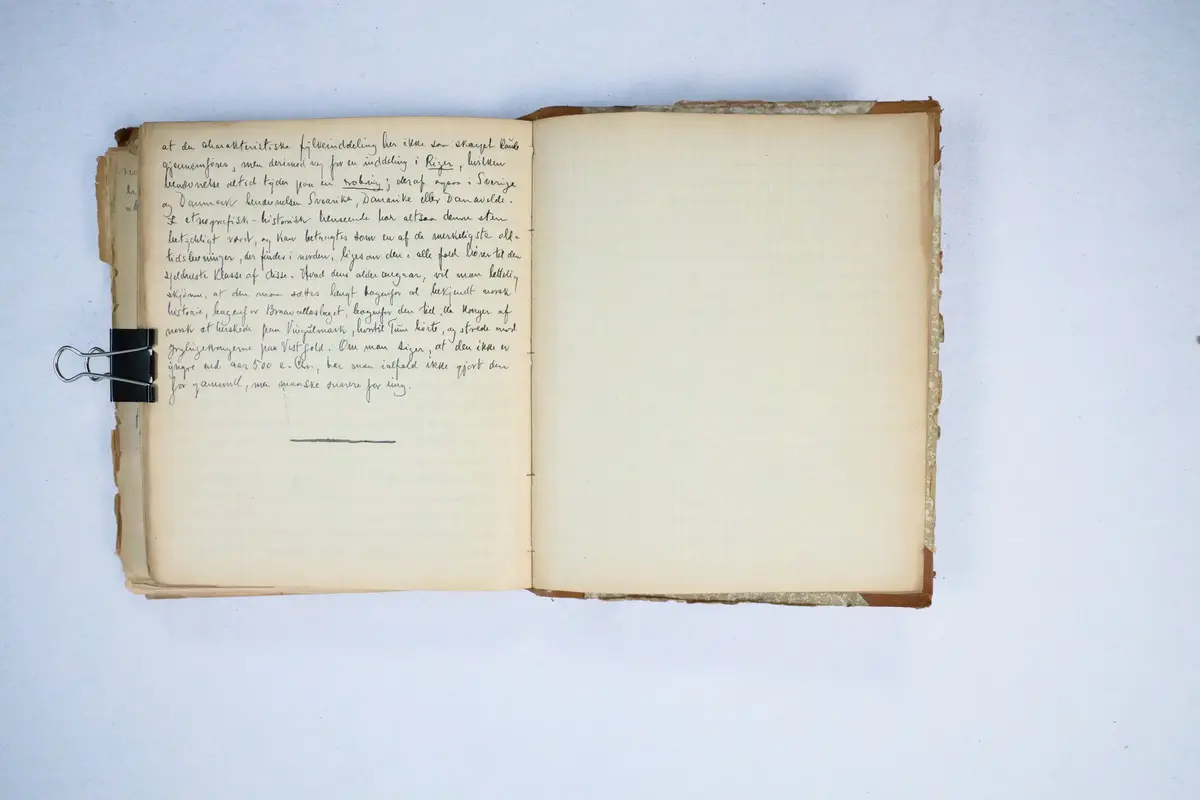 at den charakteristiske fylkeinddeling her ikke saa skarpt kunde
gjennemføres, men derimod vej for en inddeling i Riger, hvilken
benævnelse altid tyder paa en erobring; deraf ogsaa i Sverige
og Danmark benævnelsen Svearike, Danarike eller Danavelde.
I etnografisk-historisk henseende har altsaa denne sten
betydeligt værd, og kan betragtes som en af de merkeligste old-
tidslevninger, der findes i norden, ligesom den i alle fald hører til den
sjeldneste klasse af disse. Hvad dens alder angaar, vil man lettelig
skjønne, at den maa sættes langt bagenfor al bekjendt norsk
historie, bagenfor Braavallaslaget, bagenfor den tid, da konger af
norsk æt herskede paa Vingulmark, hvortil Tune hørte, og strede mod
ynglingekongerne paa Vestfold. Om man siger, at den ikke er
yngre end aar 500 e. Chr., har man ialfald ikke gjort den
for gammel, men maaske snarere for ung.